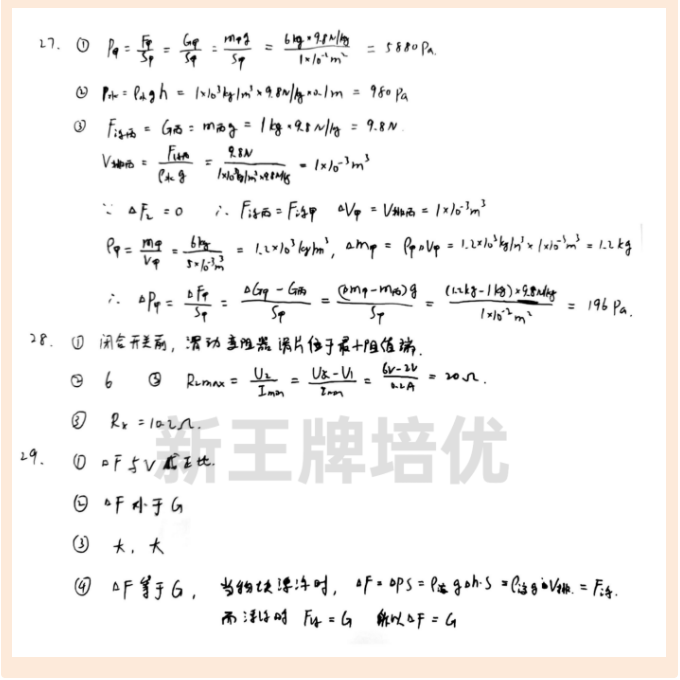 27. ① P甲 = F甲/S甲 = G甲/S甲 = m甲g/S甲 = 6kg×9.8N/kg / 1×10⁻²m² = 5880Pa.
② P水 = ρ水gh = 1×10³kg/m³×9.8N/kg×0.1m = 980Pa
③ F浮丙 = G丙 = m丙g = 1kg×9.8N/kg = 9.8N.
V排丙 = F浮丙/ρ水g = 9.8N / 1×10³kg/m³×9.8N/kg = 1×10⁻³m³
∵ △F上 = 0 ∴ F浮丙 = F浮甲 △V甲 = V排丙 = 1×10⁻³m³
ρ甲 = m甲/V甲 = 6kg / 5×10⁻³m³ = 1.2×10³kg/m³, △m甲 = ρ甲△V甲 = 1.2×10³kg/m³×1×10⁻³m³ = 1.2kg
∴ △P甲 = △F甲/S甲 = △G甲-G丙/S甲 = (△m甲-m丙)g/S甲 = (1.2kg-1kg)×9.8N/kg / 1×10⁻²m² = 196Pa.
28. ① 闭合开关前, 滑动变阻器滑片位于最大阻值端.
② 6 ③ R₂max = U₂/Imin = U总-U₁/Imin = 6V-2V/0.2A = 20Ω.
③ Rx = 10.2Ω.
29. ① △F与V成正比.
② △F小于G
③ 大, 大
④ △F等于G, 当物块漂浮时, △F=△PS=ρ液g△h·S=ρ液g△V排=F浮.
而漂浮时 F浮=G 所以△F=G
新王牌培优